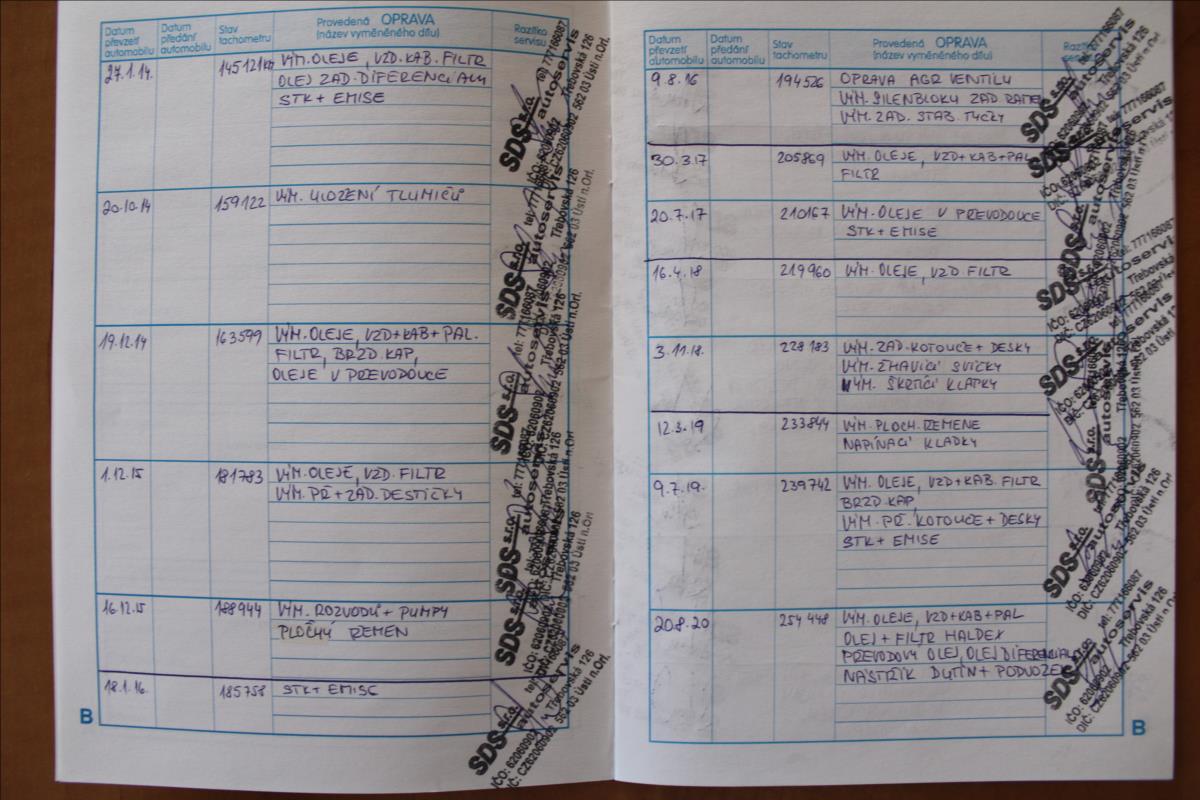 Datum převzetí automobilu
Datum předání automobilu
Stav tachometru
Provedená OPRAVA (název vyměněného dílu)
Razítko servisu
27.1.14. 145121km VÝM. OLEJE, VZD. KAB. FILTR
OLEJ ZAD. DIFERENCIÁLU
STK + EMISE
20.10.14 159122 VÝM. ULOŽENÍ TLUMIČŮ
19.12.14 163599 VÝM. OLEJE, VZD+KAB+PAL.
FILTR, BRZD. KAP,
OLEJE V PŘEVODOVCE
1.12.15 181783 VÝM. OLEJE, VZD. FILTR
VÝM. PŘ + ZAD. DESTIČKY
16.12.15 VÝM. ROZVODŮ + PUMPY
PLOCHÝ ŘEMEN
18.1.16. 185758 STK + EMISE
B
SDS s.r.o.
autoservis
Třebovská 126
562 03 Ústí n.Orl.
tel: 777166087
IČO: 62060902
DIČ: CZ62060902
Datum převzetí automobilu
Datum předání automobilu
Stav tachometru
Provedená OPRAVA (název vyměněného dílu)
9.8.16 194526 OPRAVA AGR VENTILU
VÝM. SILENBLOKŮ ZAD RAMEN
VÝM. ZAD. STAB. TYČKY
30.3.17 205869 VÝM. OLEJE, VZD+KAB+PAL
FILTR
20.7.17 210167 VÝM. OLEJE V PŘEVODOVCE
STK + EMISE
16.4.18 219960 VÝM. OLEJE, VZD FILTR
3.11.18. 228183 VÝM. ZAD. KOTOUČE + DESKY
VÝM. ŽHAVÍCÍ SVÍČKY
VÝM. ŠKRTÍCÍ KLAPKY
12.3.19 233844 VÝM. PLOCH. ŘEMENE
NAPÍNACÍ KLADKY
9.7.19. 239742 VÝM. OLEJE, VZD+KAB. FILTR
BRZD. KAP,
VÝM. PŘ. KOTOUČE + DESKY
STK + EMISE
20.8.20 254448 VÝM. OLEJE, VZD+KAB+PAL
OLEJ + FILTR HALDEX
PŘEVODOVÝ OLEJ, OLEJ DIFERENCIÁL
NÁSTŘIK DUTIN + PODVOZEK
B